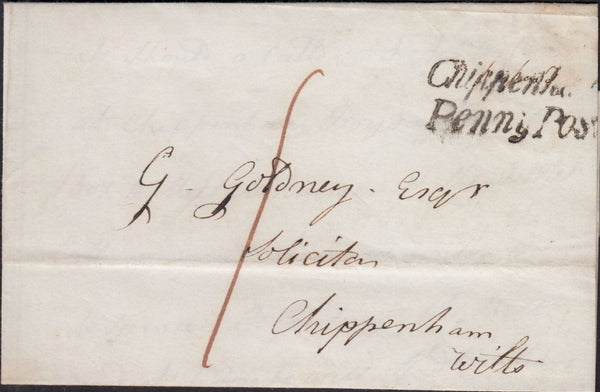 Chippenha
Penny Post
G. Goldney Esqr
Solicitor
Chippenham
Wilts